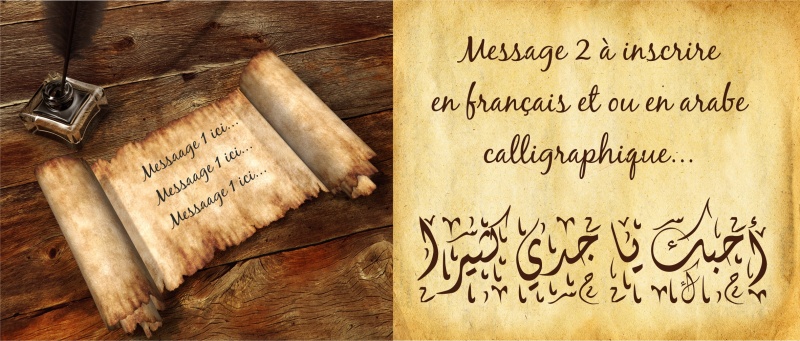 Messaage 1 ici...
Messaage 1 ici...
Messaage 1 ici...
Message 2 à inscrire
en français et ou en arabe
calligraphique...
أحبك يا جدي كثيرا